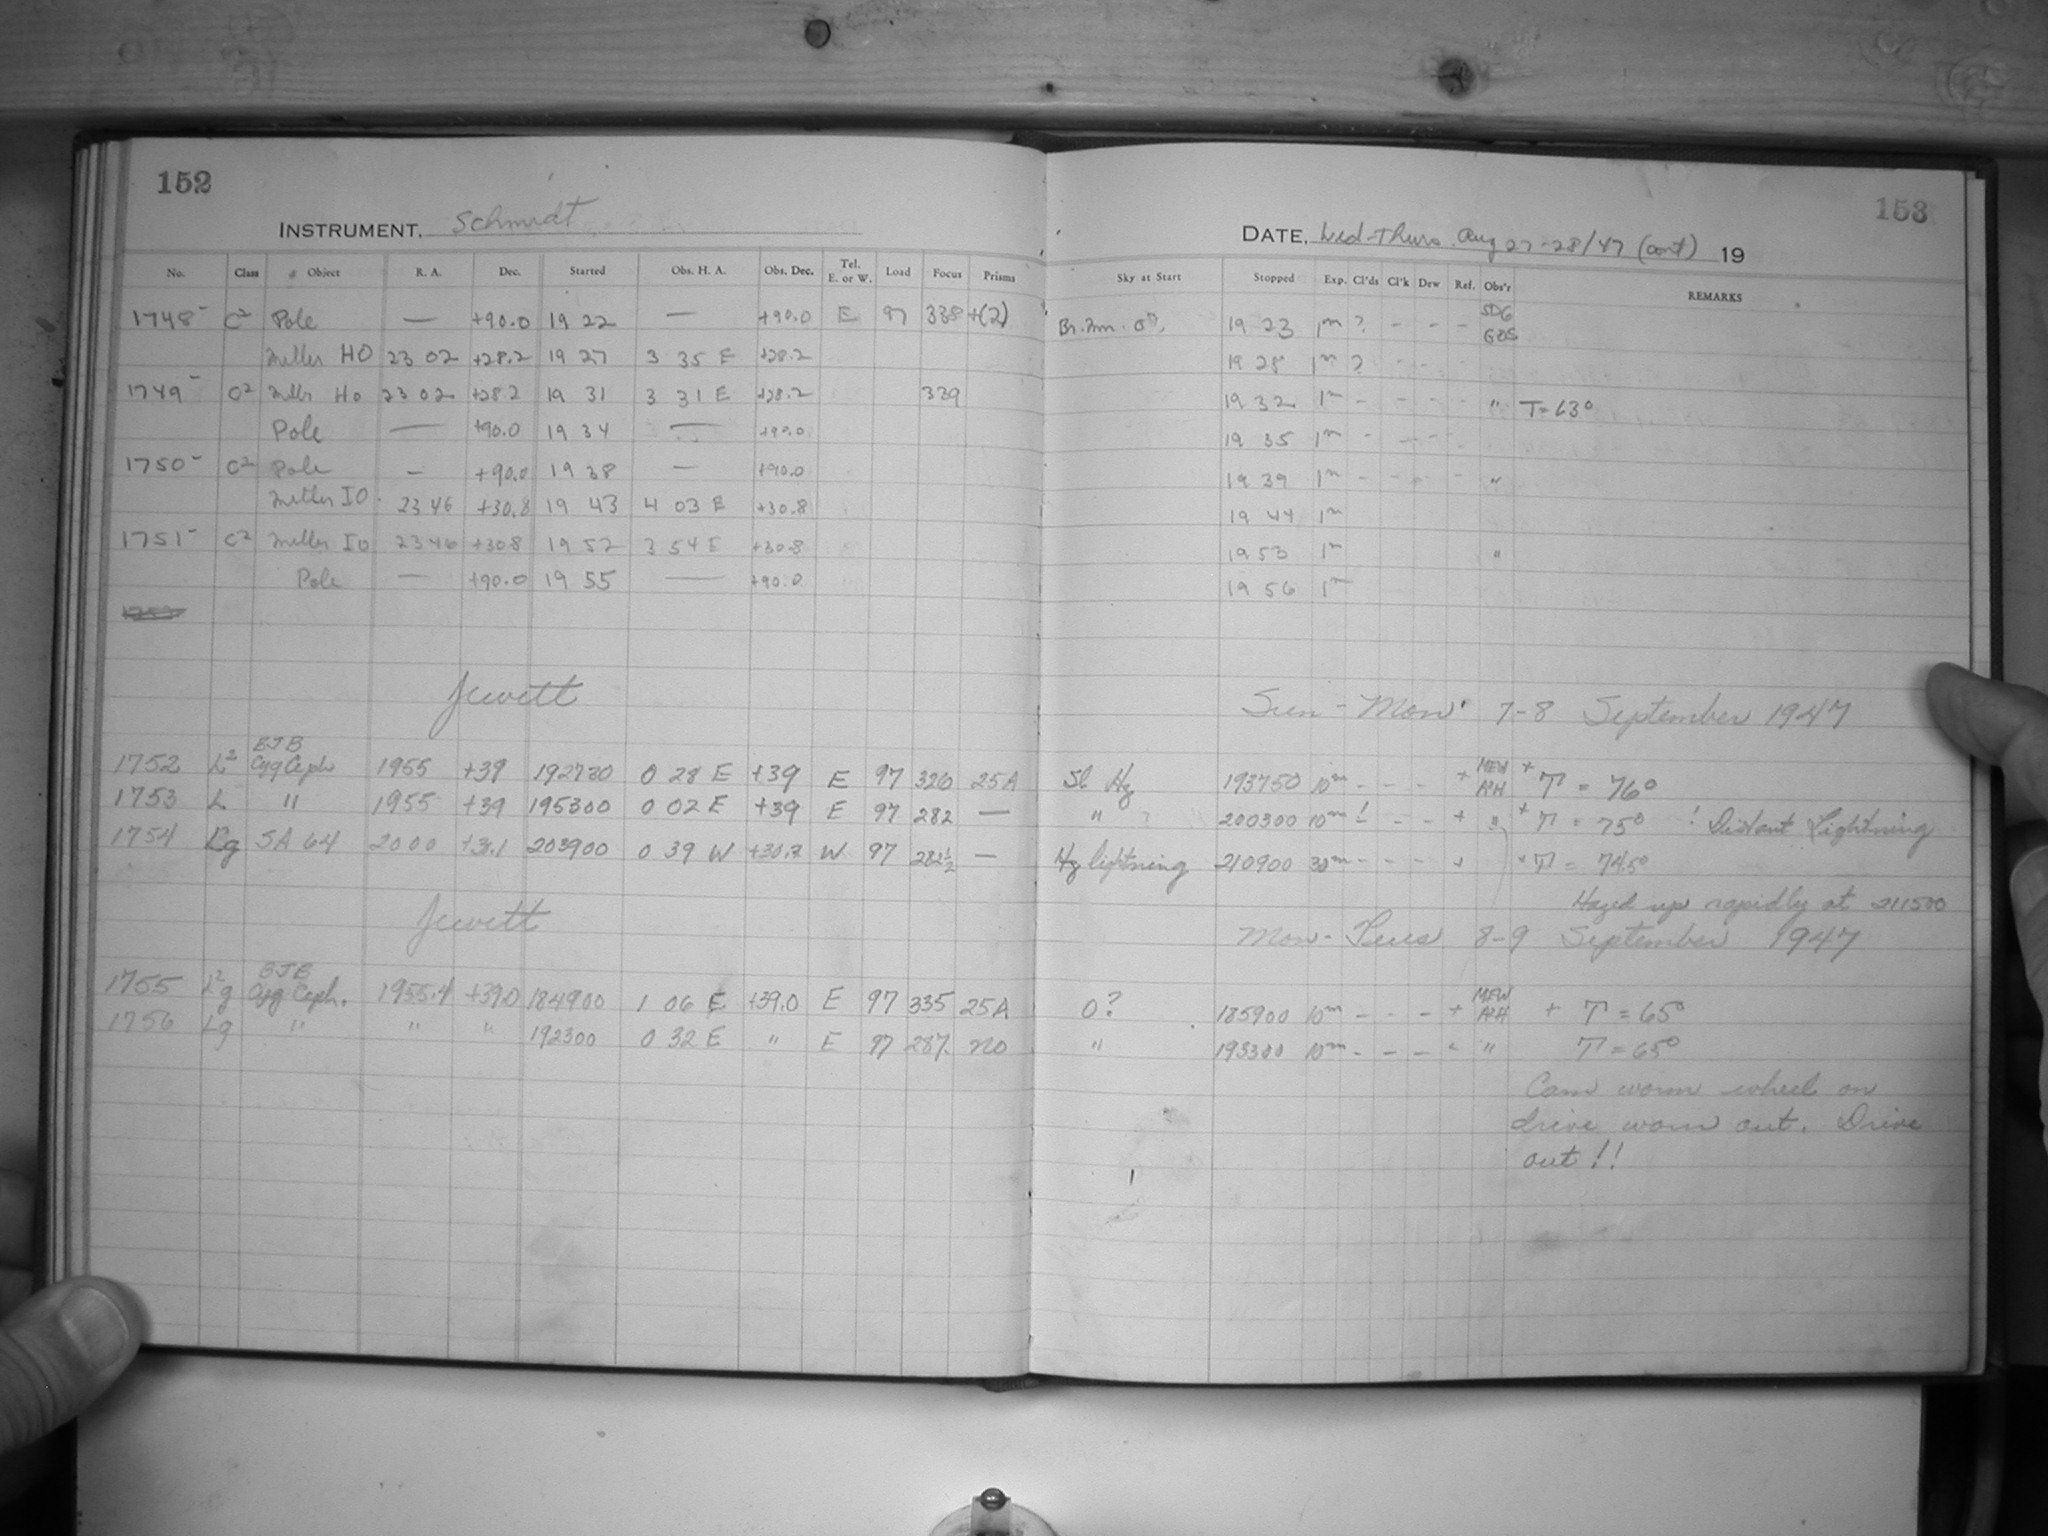 152
153
INSTRUMENT, Schmidt
DATE, Wed-Thurs. Aug 27-28/47 (cont) 19
No. Class Object R. A. Dec. Started Obs. H. A. Obs. Dec. Tel. E. or W. Load Focus Prisms Sky at Start Stopped Exp. Cl'ds Cl'k Dew Ref. Obs'r REMARKS
1748 - C2 Pole — +90.0 19 22 — +90.0 E 97 338 +(2) 19 23 1m ? - - - SDG
Miller HO 23 02 +28.2 19 27 3 35 E +28.2 19 28 1m ?
1749 - C2 Miller Ho 23 02 +28.2 19 31 3 31 E +28.2 339 19 32 1m - - - - " T=63°
Pole — +90.0 19 34 — +90.0 19 35 1m - - - -
1750 - C2 Pole — +90.0 19 38 — +90.0 19 39 1m - - - - "
Miller IO. 23 46 +30.8 19 43 4 03 E +30.8 19 44 1m
1751 - C2 Miller Io 23 46 +30.8 19 52 3 54 E +30.8 19 53 1m "
Pole — +90.0 19 55 — +90.0 19 56 1m
Jewett Sun - Mon. 7-8 September 1947
BJB
1752 L2 Cyg Ceph 1955 +39 192730 0 28 E +39 E 97 326 25A Sl Hz 193750 10m - - - + MEW ARH + T = 76°
1753 L " 1955 +39 195300 0 02 E +39 E 97 282 — " 200300 10m ! - - + " + T = 75° ! Distant Lightning
1754 Lg SA 64 2000 +31.1 203900 0 39 W W 97 282½ — Hz lightning 210900 30m - - - - + + T = 74.5°
Hazed up rapidly at 211500
Jewett Mon - Tues 8-9 September 1947
BJB
1755 L2g Cyg Ceph. 1955.4 +39.0 184900 1 06 E +39.0 E 97 335 25A O? 185900 10m - - - + MEW ARH + T = 65°
1756 Lg " " " 192300 0 32 E " E 97 287. no " 193300 10m - - - " T = 65°
Cam worm wheel on
drive worn out. Drive
out!!